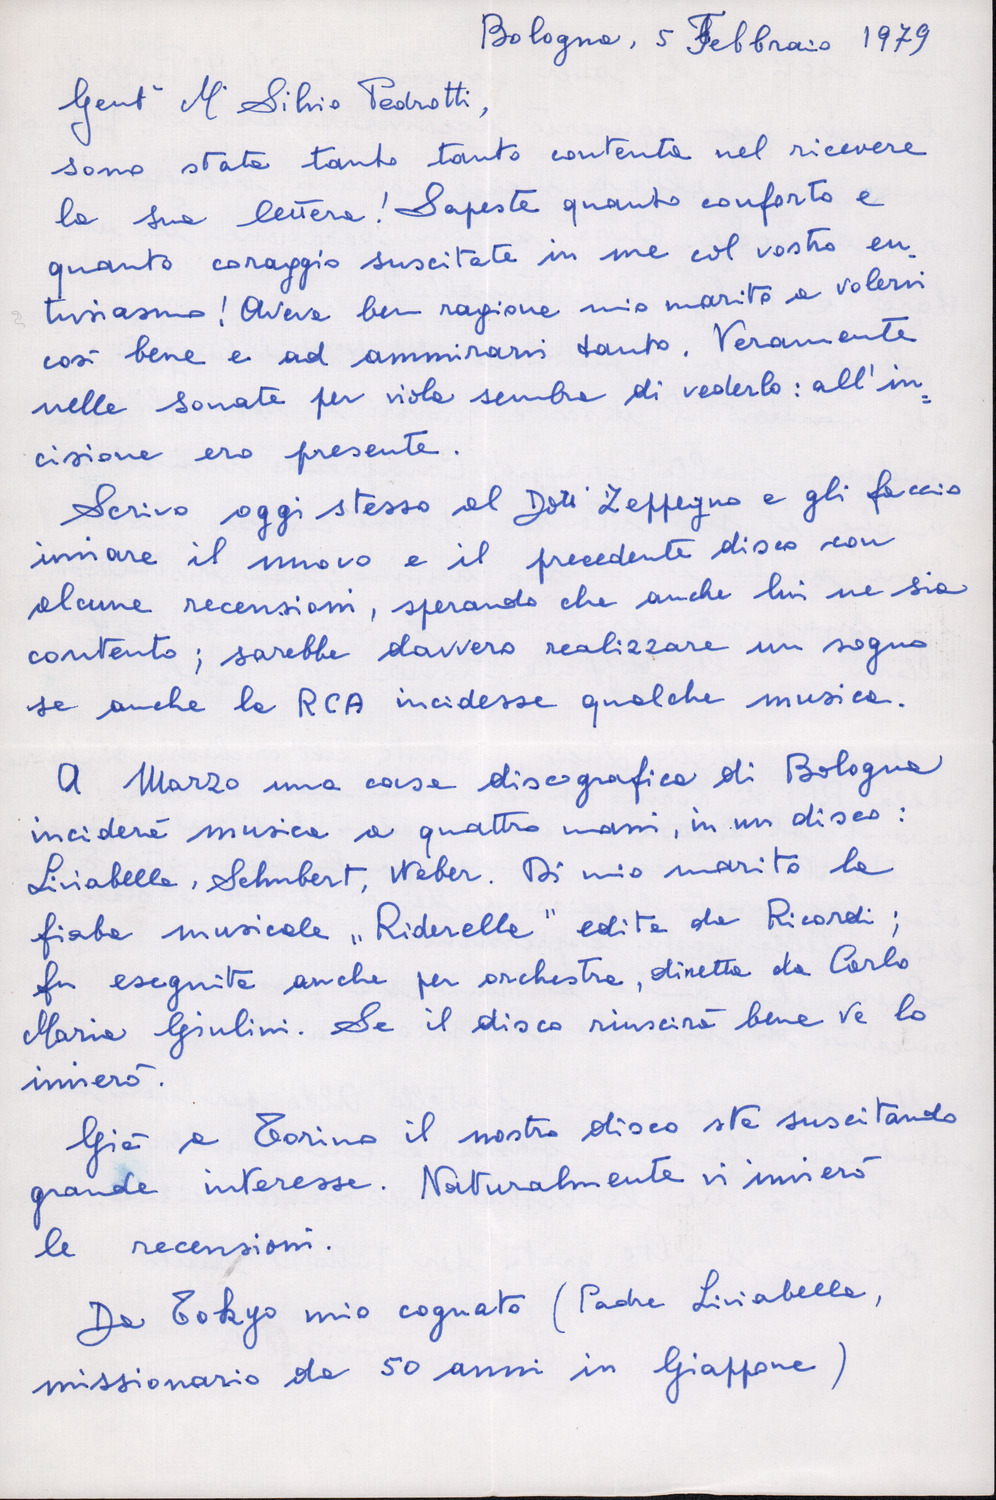 Bologna, 5 Febbraio 1979
Gent. M° Silvio Pedrotti,
sono stata tanto tanto contenta nel ricevere
la sua lettera! Sapeste quanto conforto e
quanto coraggio suscitate in me col vostro en-
tusiasmo! Aveva ben ragione mio marito a volervi
così bene e ad ammirarvi tanto. Veramente
nelle sonate per viola sembra di vederlo: all'in=
cisione ero presente.
Scrivo oggi stesso al Dott. Zeppegno e gli faccio
inviare il nuovo e il precedente disco con
alcune recensioni, sperando che anche lui ne sia
contento; sarebbe davvero realizzare un sogno
se anche la RCA incidesse qualche musica.
A Marzo una casa discografica di Bologna
inciderà musica a quattro mani, in un disco:
Liviabella, Schubert, Weber. Di mio marito la
fiaba musicale „Riderella" edita da Ricordi;
fu eseguita anche per orchestra, diretta da Carlo
Maria Giulini. Se il disco riuscirà bene ve lo
invierò.
Già a Torino il nostro disco sta suscitando
grande interesse. Naturalmente vi invierò
le recensioni.
Da Tokyo mio cognato (Padre Liviabella,
missionario da 50 anni in Giappone)